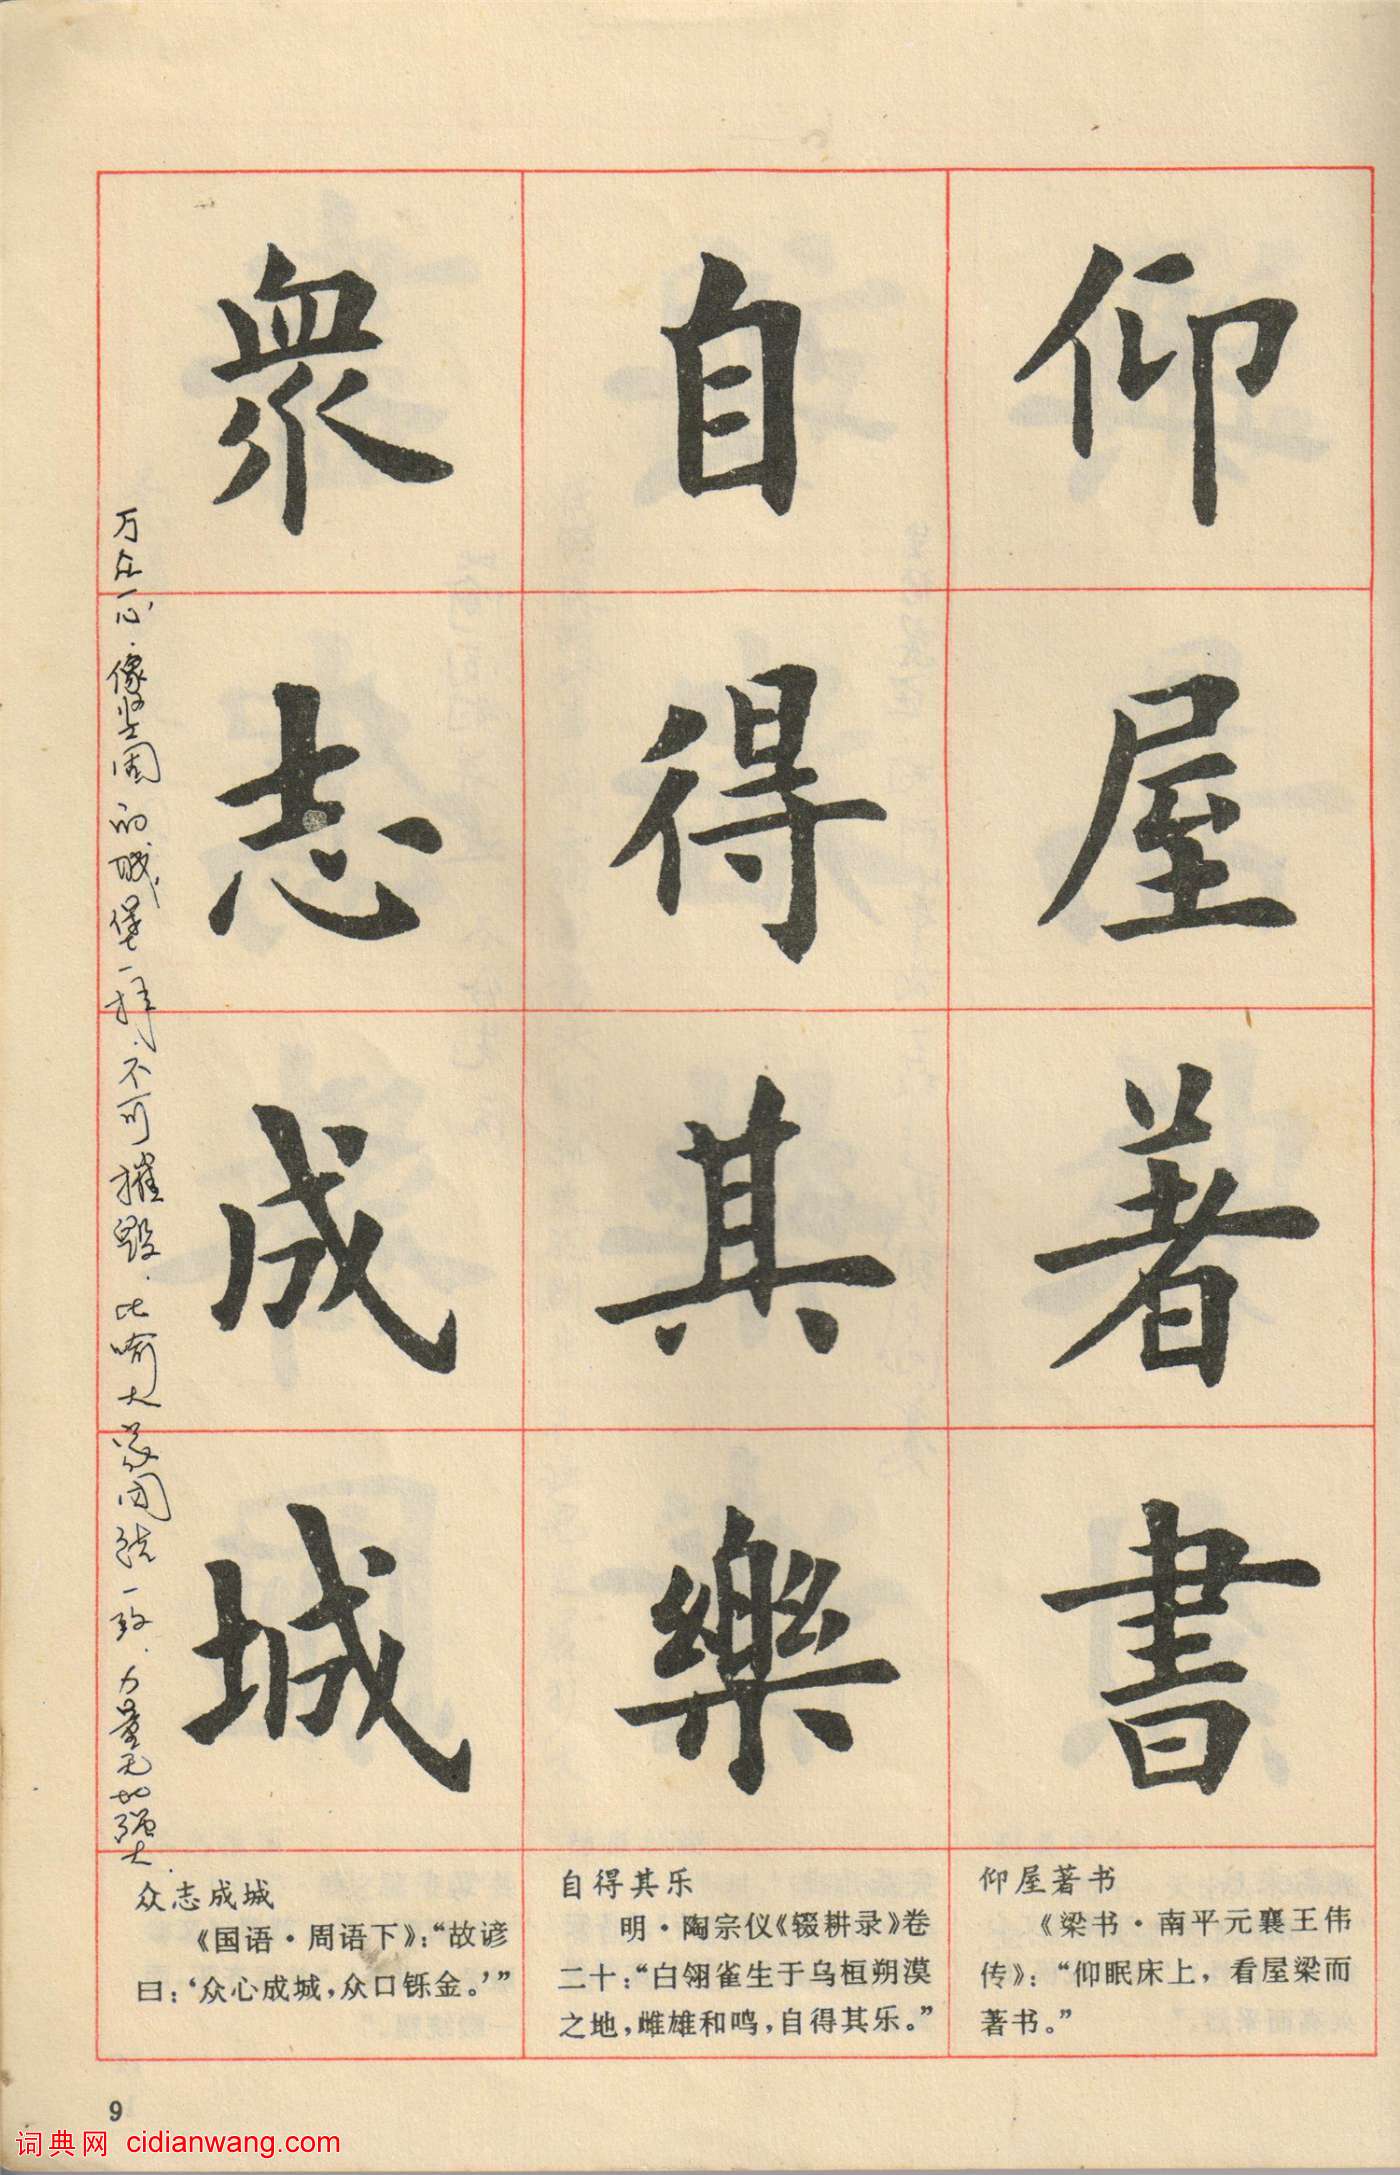 仰屋著書
自得其樂
眾志成城
万众一心.像坚固的城堡一样.不可摧毁.比喻大家团结一致.力量无比强大.
仰屋著书
《梁书·南平元襄王伟
传》：“仰眠床上，看屋梁而
著书。”
自得其乐
明·陶宗仪《辍耕录》卷
二十：“白翎雀生于乌桓朔漠
之地，雌雄和鸣，自得其乐。”
众志成城
《国语·周语下》：“故谚
曰：‘众心成城，众口铄金。’”
9
词典网 cidianwang.com